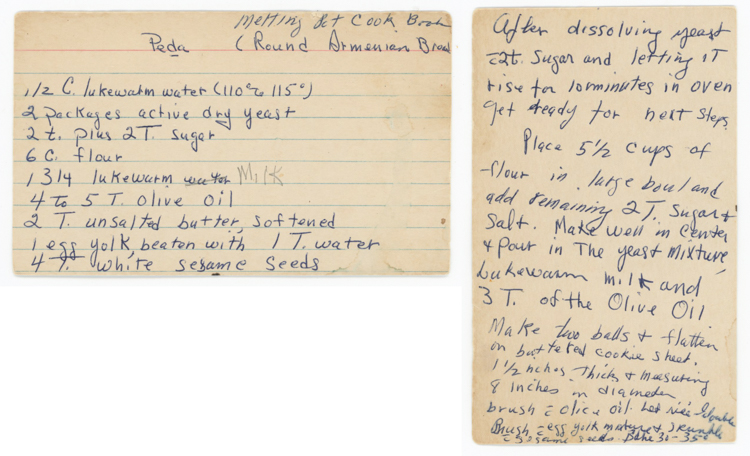 Melting Pot Cook Book
Peda (Round Armenian Bread
1/2 C. lukewarm water (110° to 115°)
2 packages active dry yeast
2 t. plus 2 T. sugar
6 C. flour
1 3/4 lukewarm water Milk
4 to 5 T. Olive Oil
2 T. unsalted butter, softened
1 egg yolk, beaten with 1 T. water
4 T. white sesame seeds
After dissolving yeast
=2t. Sugar and letting IT
rise for 10 minutes in oven
get ready for next steps
Place 5 1/2 cups of
flour in large bowl and
add remaining 2 T. sugar &
Salt. Make well in Center
& Pour in The yeast mixture,
Lukewarm milk and
3 T. of the Olive Oil
Make two balls & flatten
on buttered cookie sheet.
1 1/2 inches Thick & measuring
8 inches in diameter
brush = olive oil. Let rise &double
Brush = egg yolk mixture & sprinkle
= sesame seeds Bake 30-35